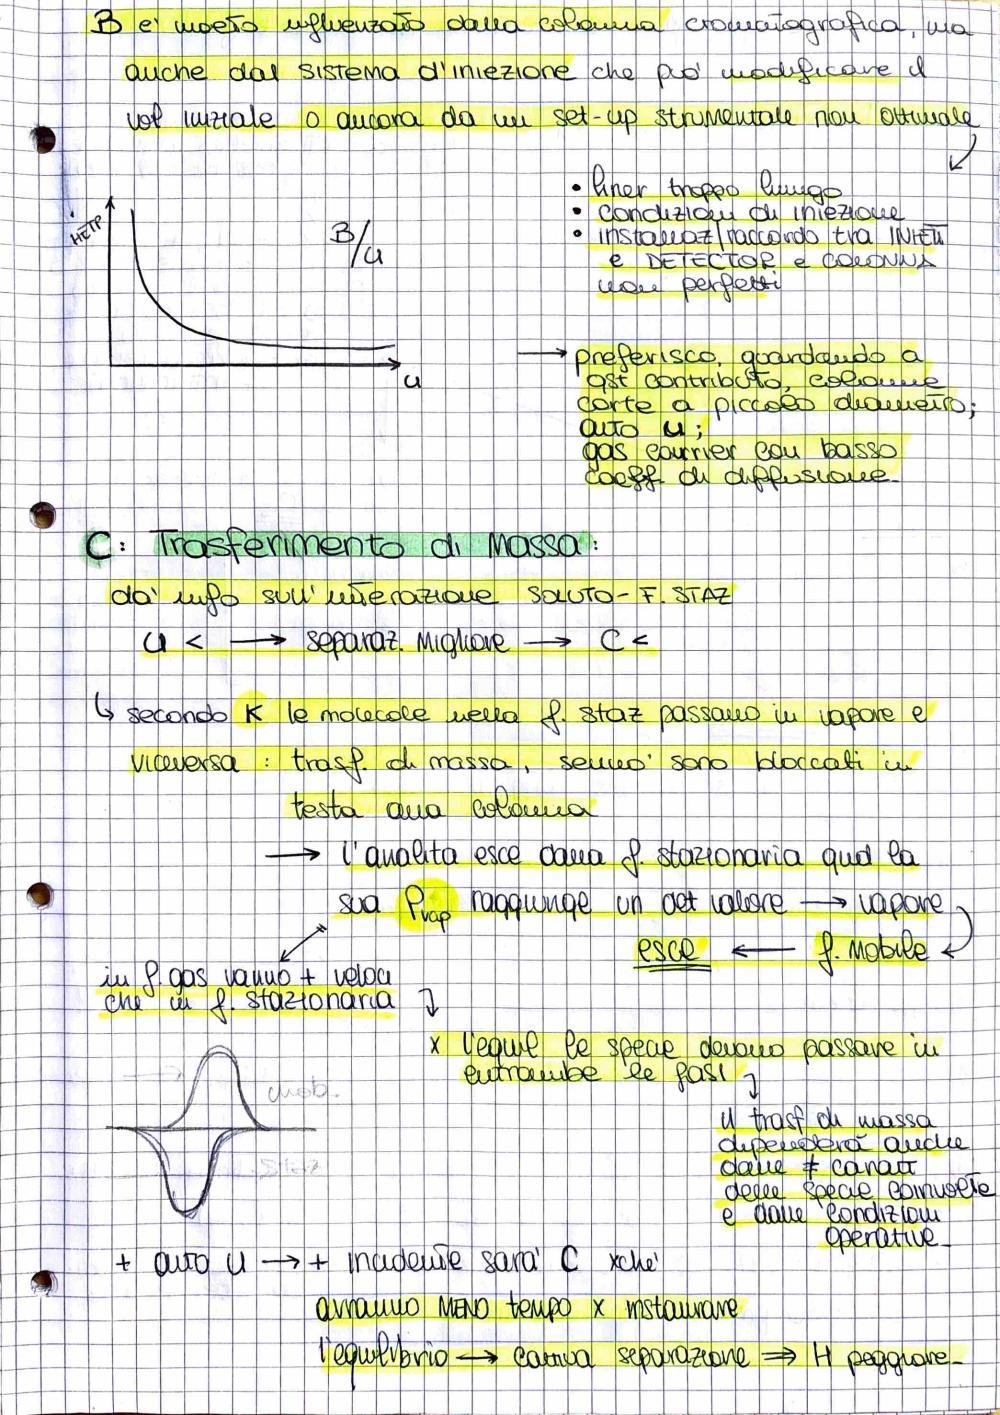 B e' molto influenzato dalla colonna cromatografica, ma
anche dal sistema d'iniezione che può modificare il
vol iniziale o ancora da un set-up strumentale non ottimale
• liner troppo lungo
• condizioni di iniezione
• installaz/raccordo tra INLET
e DETECTOR e COLONNA
non perfetti
HETP
B/u
u
→ preferisco, guardando a
qst contributo, colonne
corte a piccolo diametro;
alto u;
gas carrier con basso
coeff di diffusione.
C: Trasferimento di Massa:
da' info sull'interazione SOLUTO - F. STAZ
u < → separaz. Migliore → C <
↳ secondo K le molecole nella f. staz passano in vapore e
viceversa : trasf. di massa, senno' sono bloccati in
testa alla colonna
→ l'analita esce dalla f. stazionaria qnd la
sua Pvap raggiunge un det valore → vapore
esce ← f. Mobile
in f. gas vanno + veloci
che in f. stazionaria
x l'equil le specie devono passare in
entrambe le fasi
mob.
staz
il trasf di massa
dipenderà anche
dalle ≠ caratt
delle specie coinvolte
e dalle condizioni
operative.
+ alto u → + incidente sara' C xche'
avranno MENO tempo x instaurare
l'equilibrio → cattiva separazione ⇒ H peggiore.